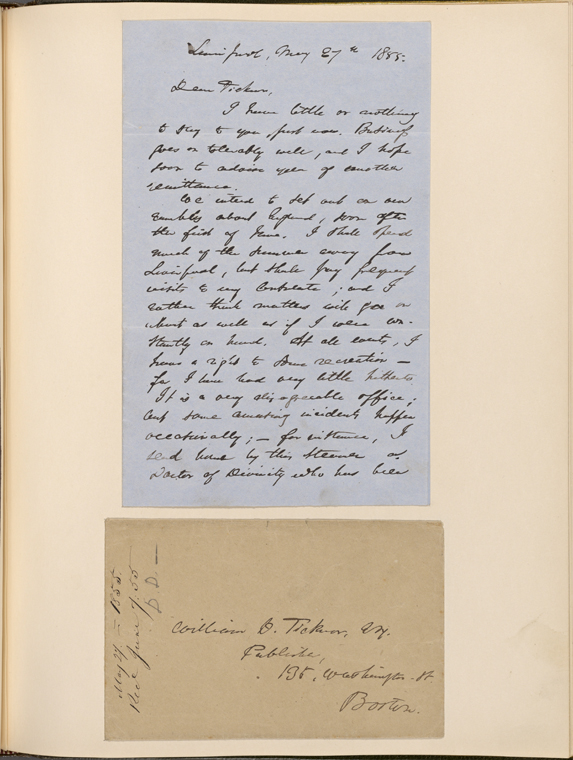 Liverpool, May 27th 1855.
Dear Ticknor,
I have little or nothing
to say to you, just now. Business
goes on tolerably well, and I hope
soon to advise you of another
remittance.
We intend to set out on our
rambles about England, soon after
the first of June. I shall spend
much of the summer away from
Liverpool, but shall pay frequent
visits to my Consulate; and I
rather think matters will go on
about as well as if I were con-
stantly on hand. At all events, I
have a right to some recreation —
for I have had very little hitherto
It is a very disagreeable office;
but some amusing incidents happen
occasionally; — for instance, I
send home by this steamer a
Doctor of Divinity who has been
William D. Ticknor, Esq.
Publisher,
135, Washington St.
Boston.
May 27 — 1855.
Recd June 9. 55
D.D. —